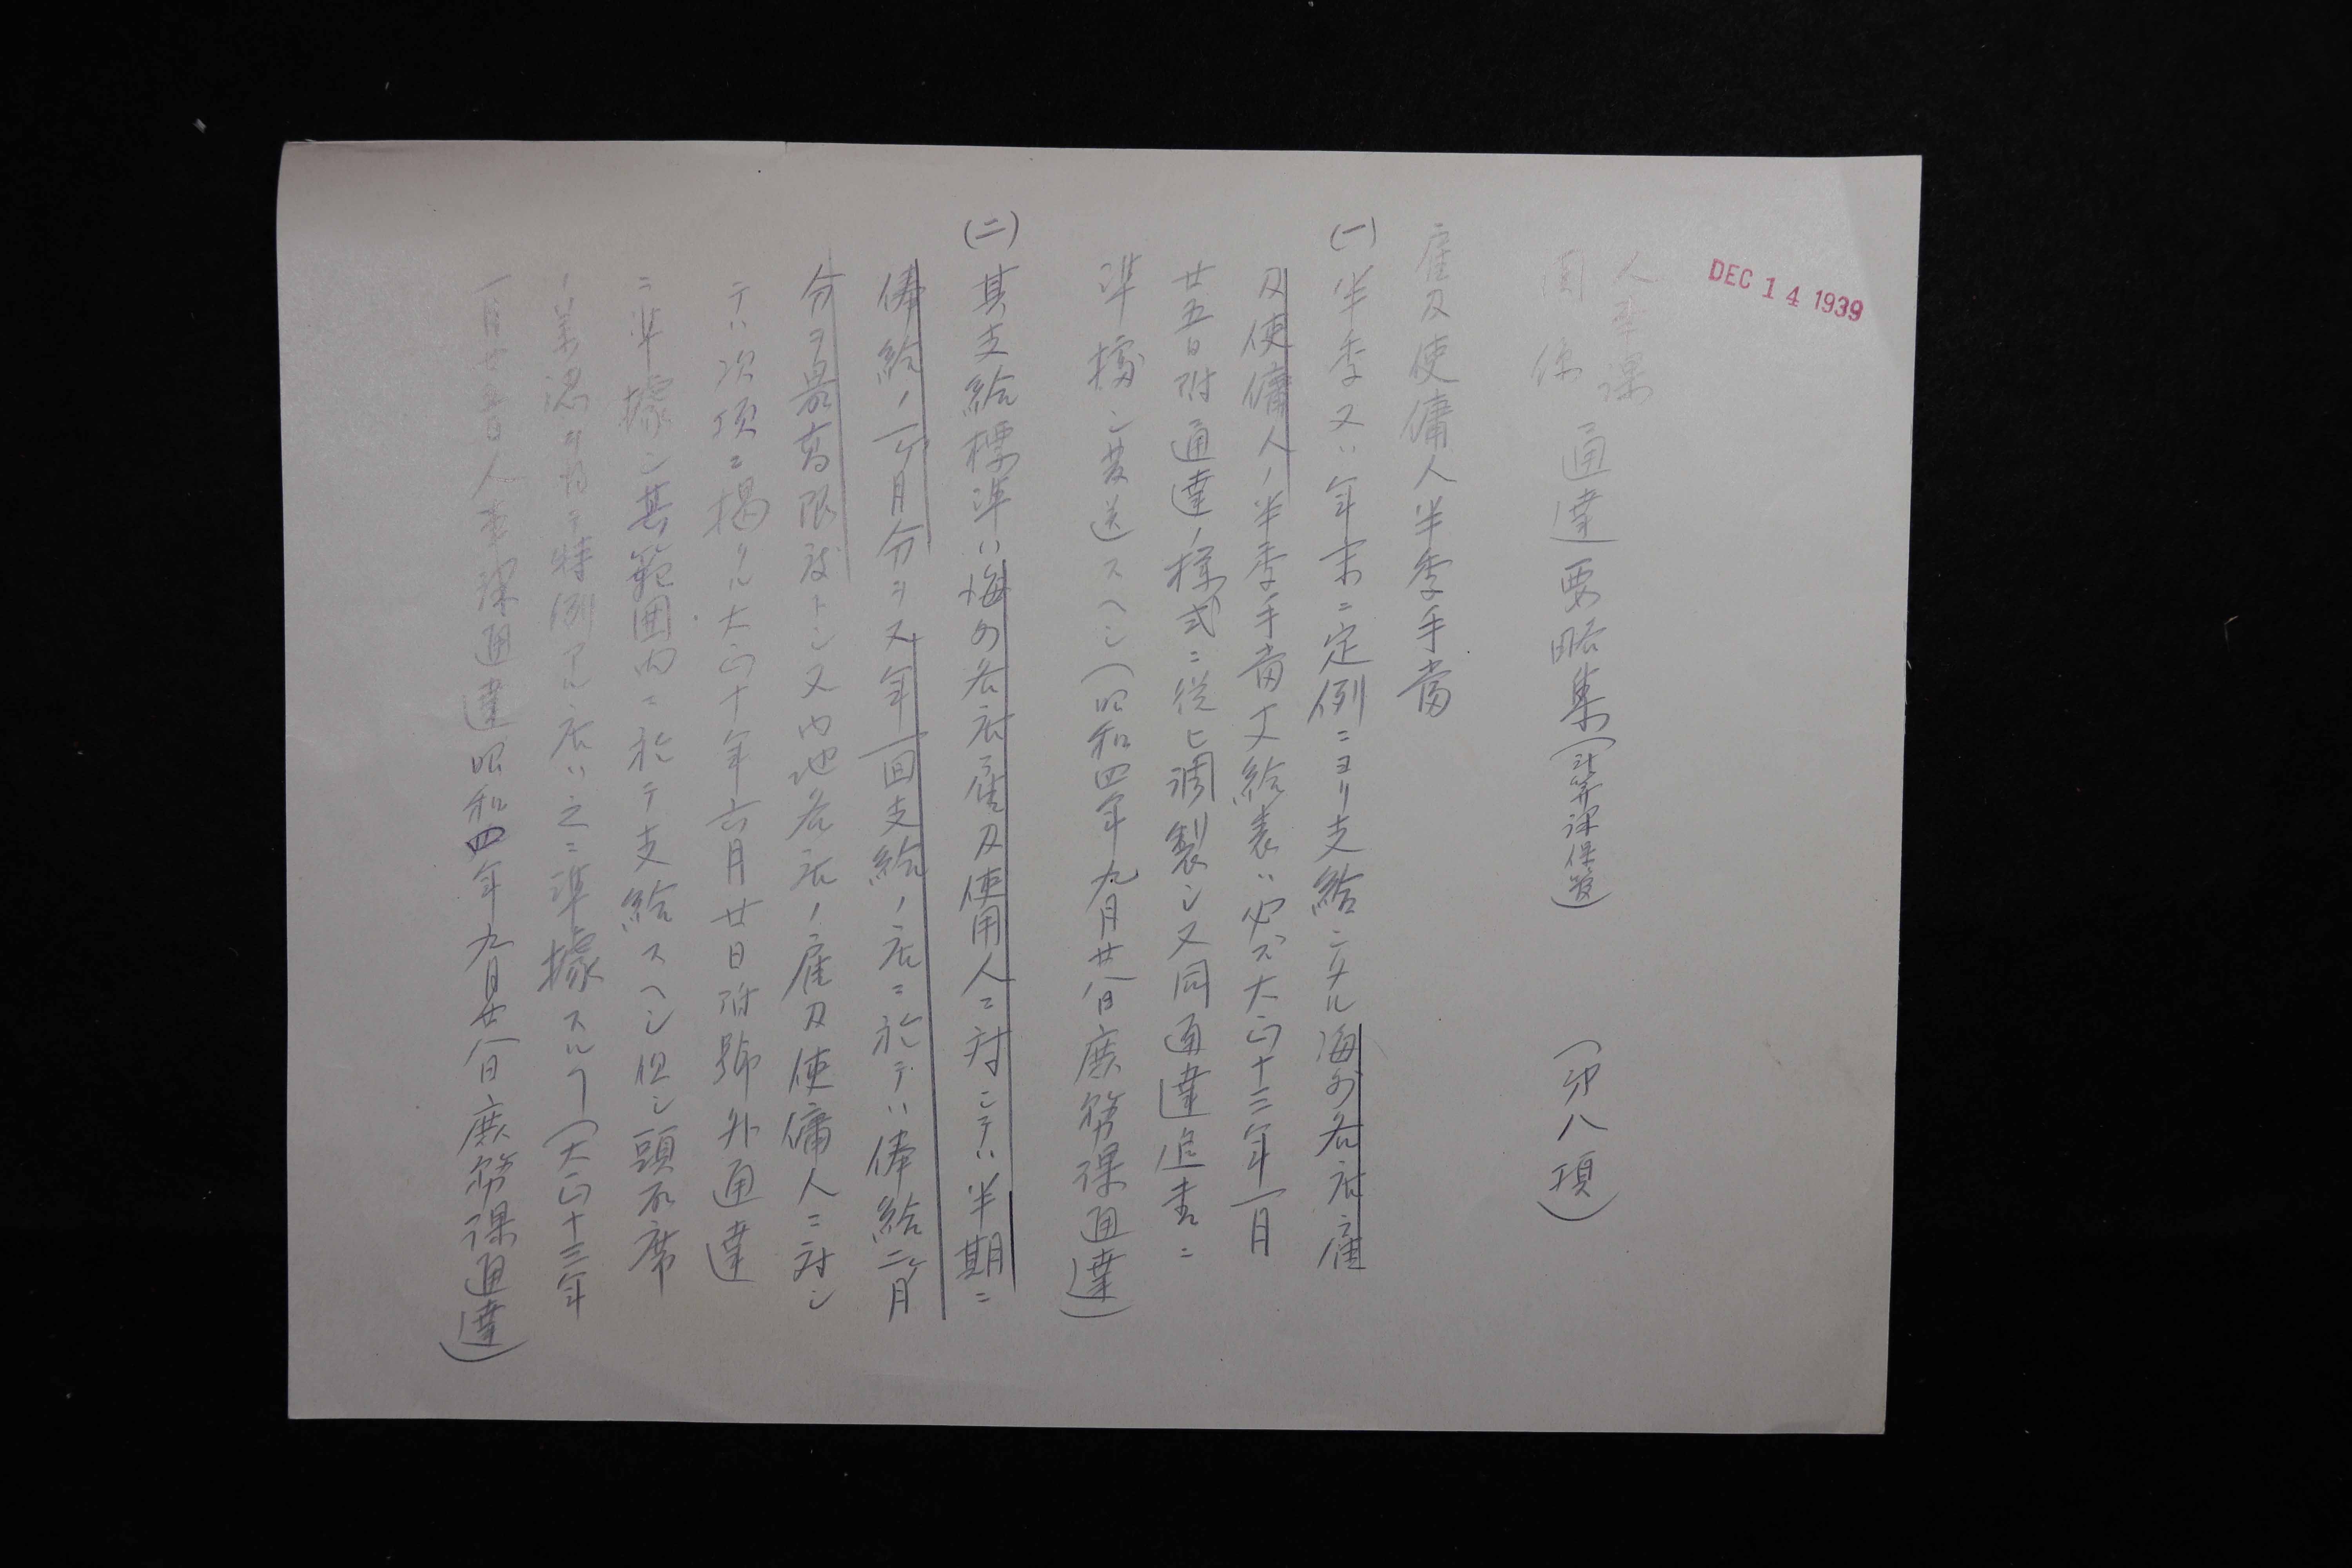 DEC 14 1939
人事課
関係
通達要略集(計算課保管)(第八項)
雇及使傭人半季手當
(一)半季又ハ年末ニ定例ニヨリ支給シタル海外各店雇
及使傭人ノ半季手當支給表ハ必ズ大正十三年一月
廿五日附通達ノ様式ニ従ヒ調製シ又同通達追書ニ
準據シ発送スヘシ(昭和四年九月廿八日庶務課通達)
(二)其支給標準ハ海外各店雇及使用人ニ対シテハ半期ニ
俸給ノ一ヶ月分ヲ又年一回支給ノ店ニ於テハ俸給二ヶ月
分ヲ最高限度トシ又内地各店ノ雇及使傭人ニ対シ
テハ次項ニ掲クル大正十年六月廿日附號外通達
ニ準據シ其範囲内ニ於テ支給スヘシ但シ頭取席
ノ承認ヲ得テ特例アル店ハ之ニ準據スルヿ(大正十三年
一月廿五日人事課通達昭和四年九月廿八日庶務課通達)